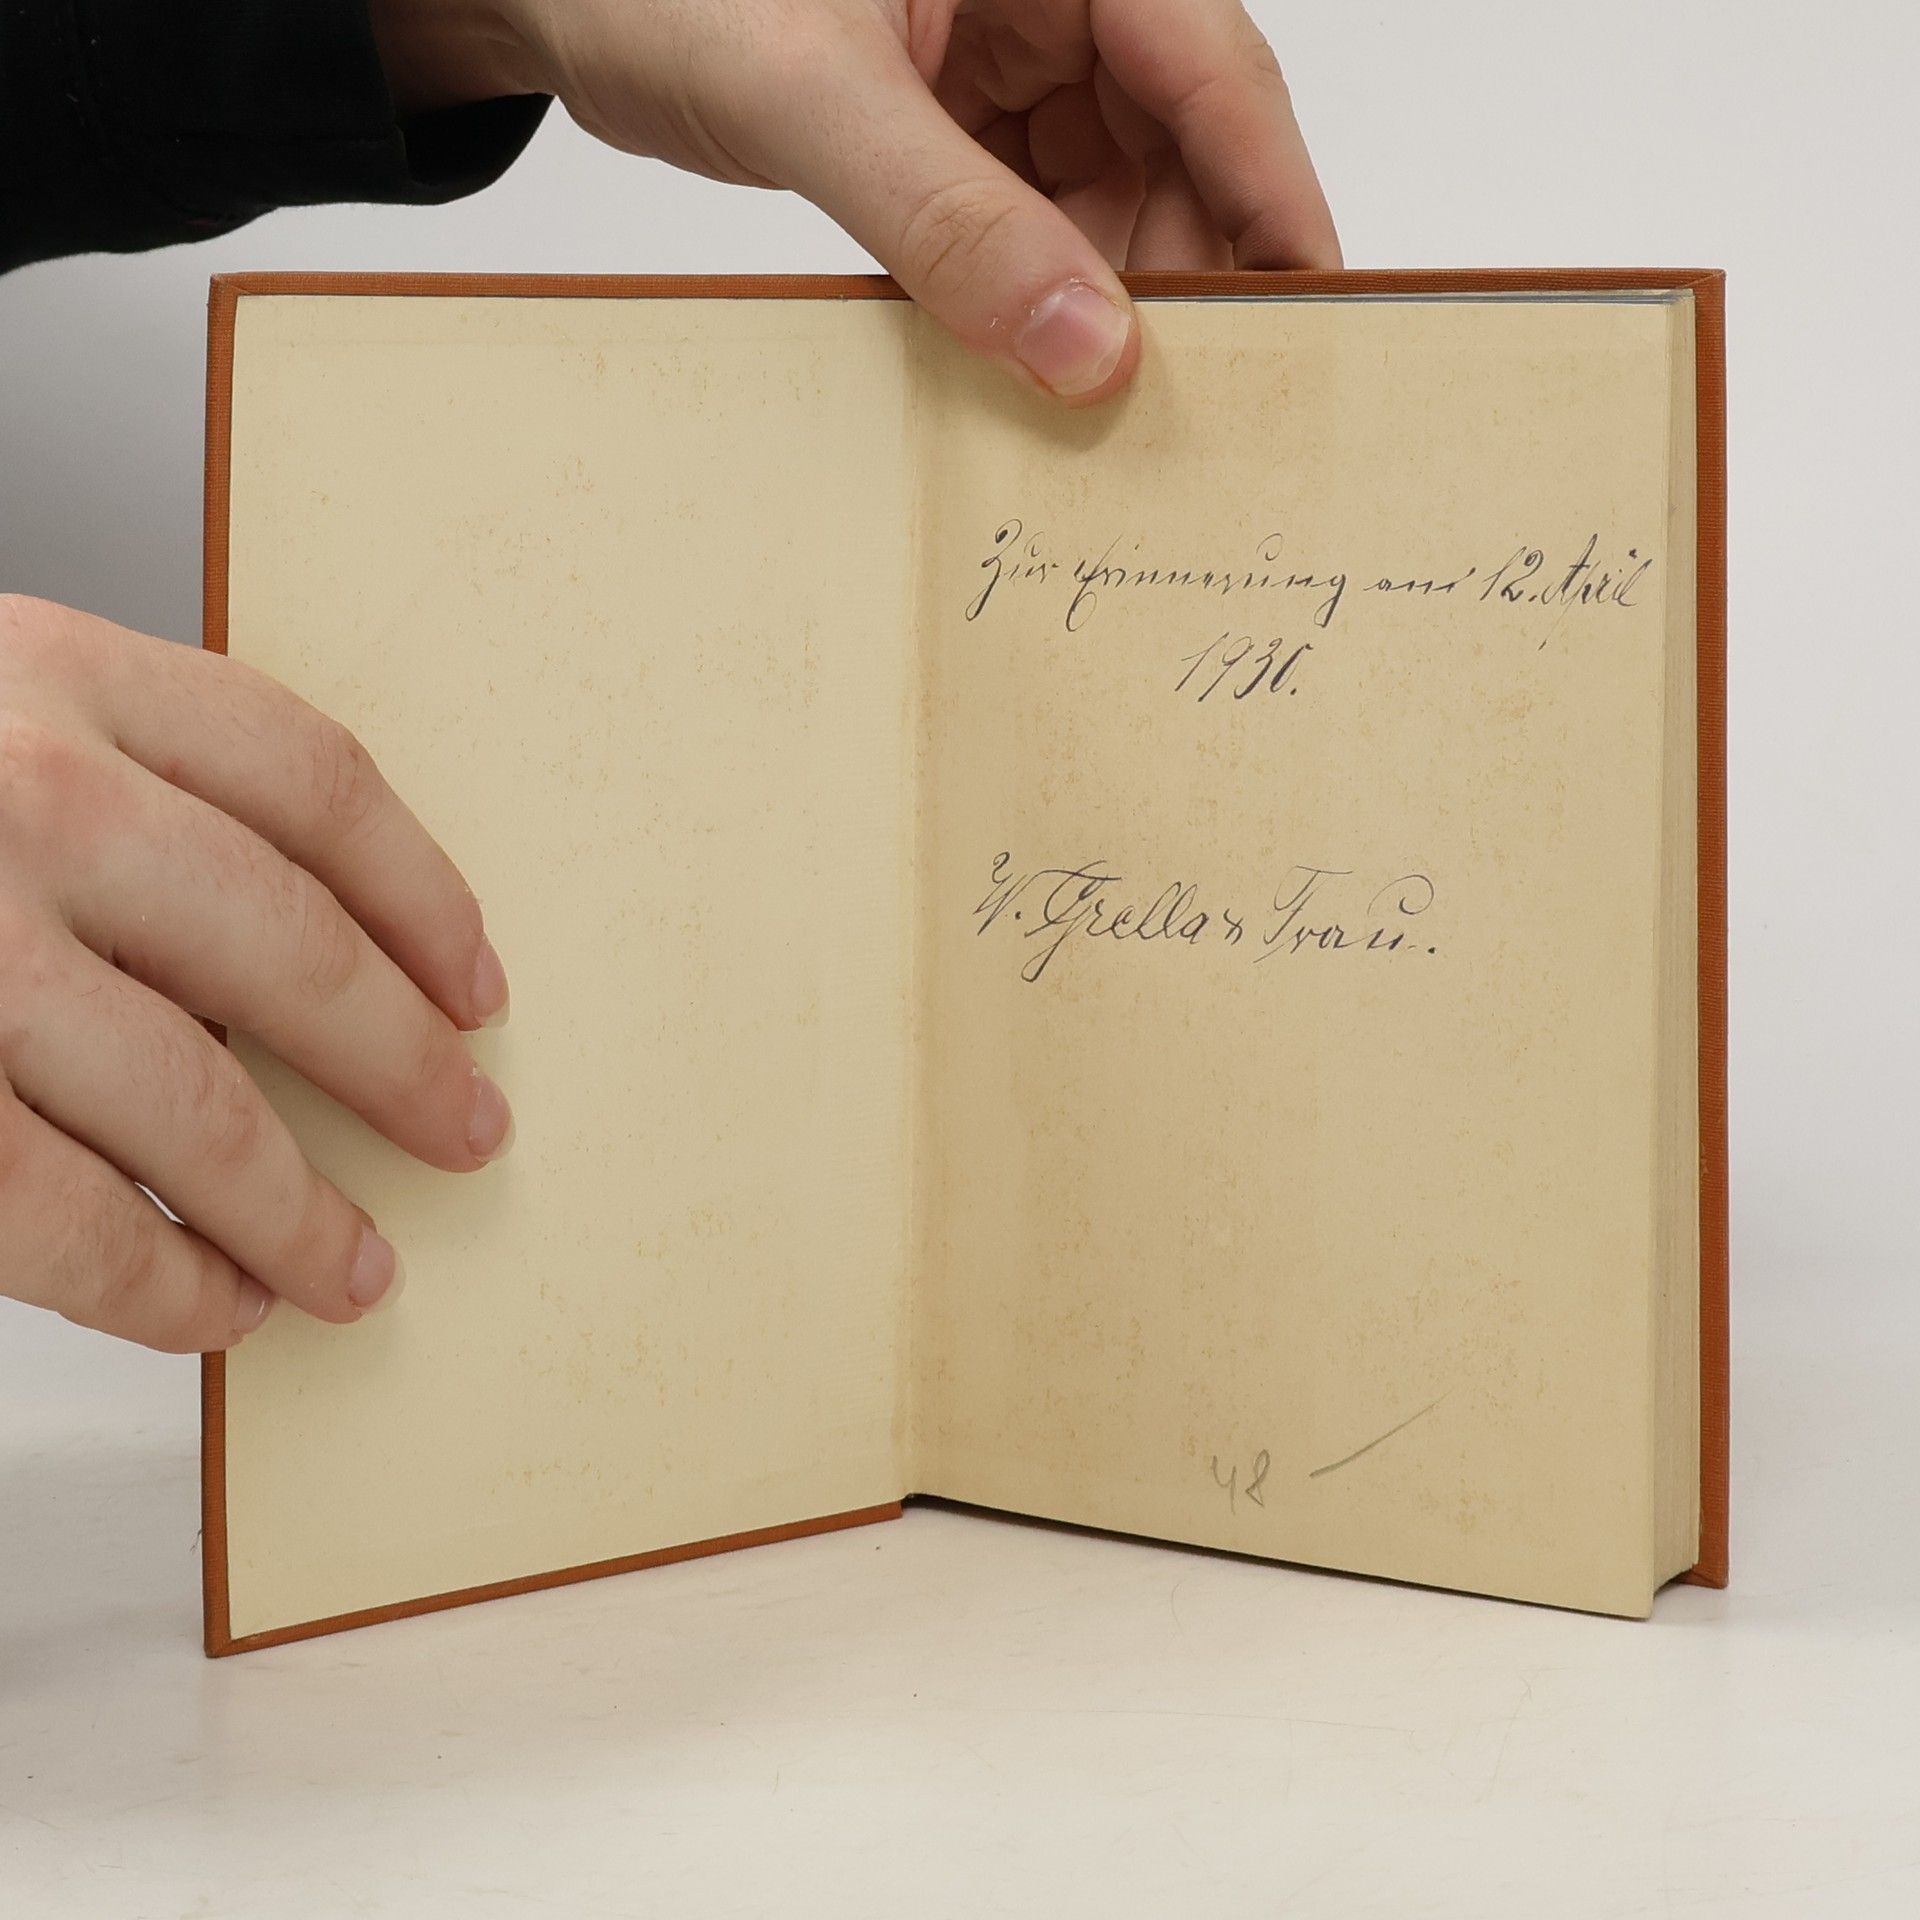 Zur Erinnerung am 12. April
1930.
W. Grella & Frau.
48 —